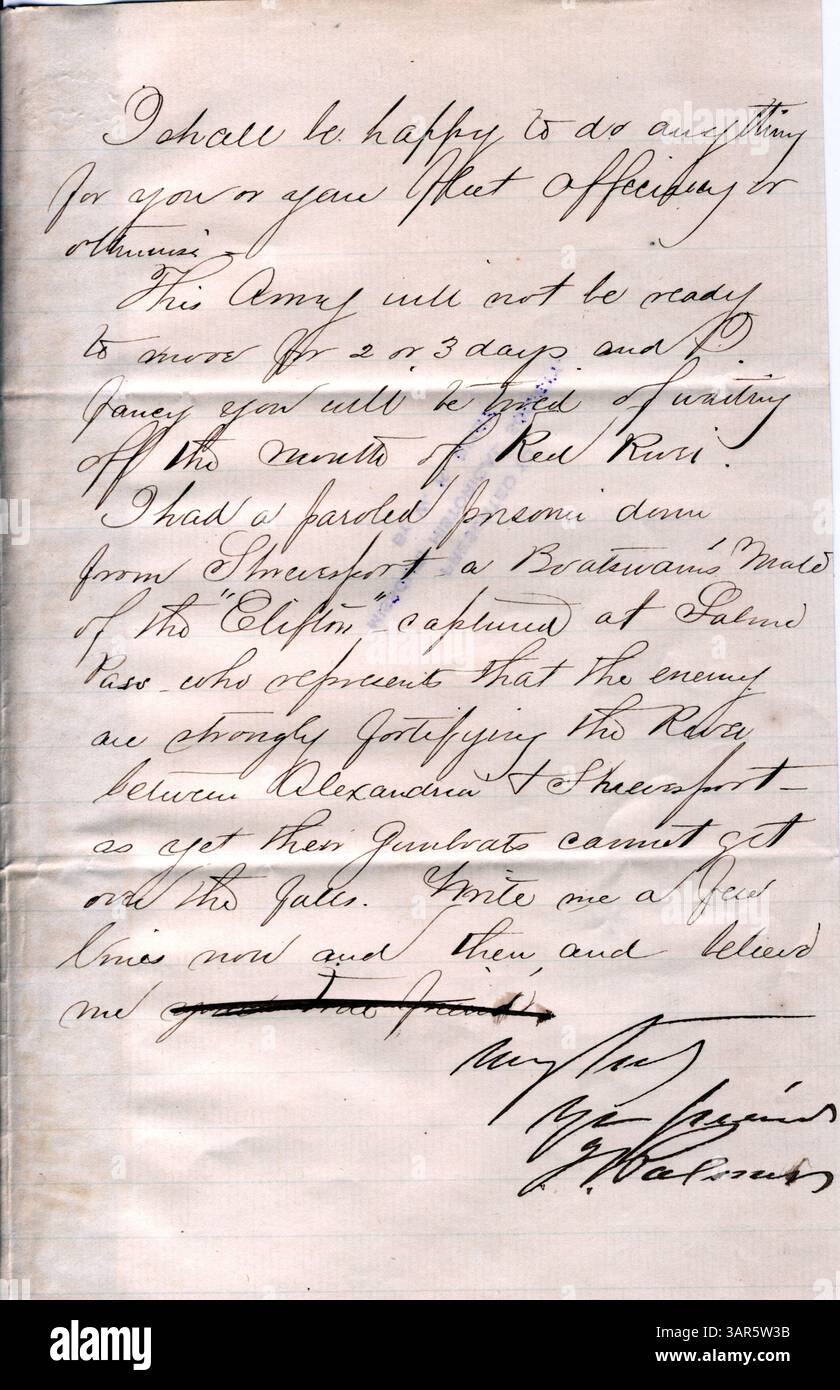 I shall be happy to do anything
for you or your fleet officially or
otherwise -
This Army will not be ready
to move for 2 or 3 days and I
fancy you will be tired of waiting
off the mouth of Red River.
I had a paroled prisoner down
from Shreveport - a Boatswain's Mate
of the "Clifton" - captured at Sabine
Pass - who represents that the enemy
are strongly fortifying the River
between Alexandria & Shreveport -
as yet their Gunboats cannot get
over the falls. Write me a few
lines now and then, and believe
me your true friend
Very Truly
Yr friend
J. Palmer
alamy
Image ID: 3AR5W3B
www.alamy.com